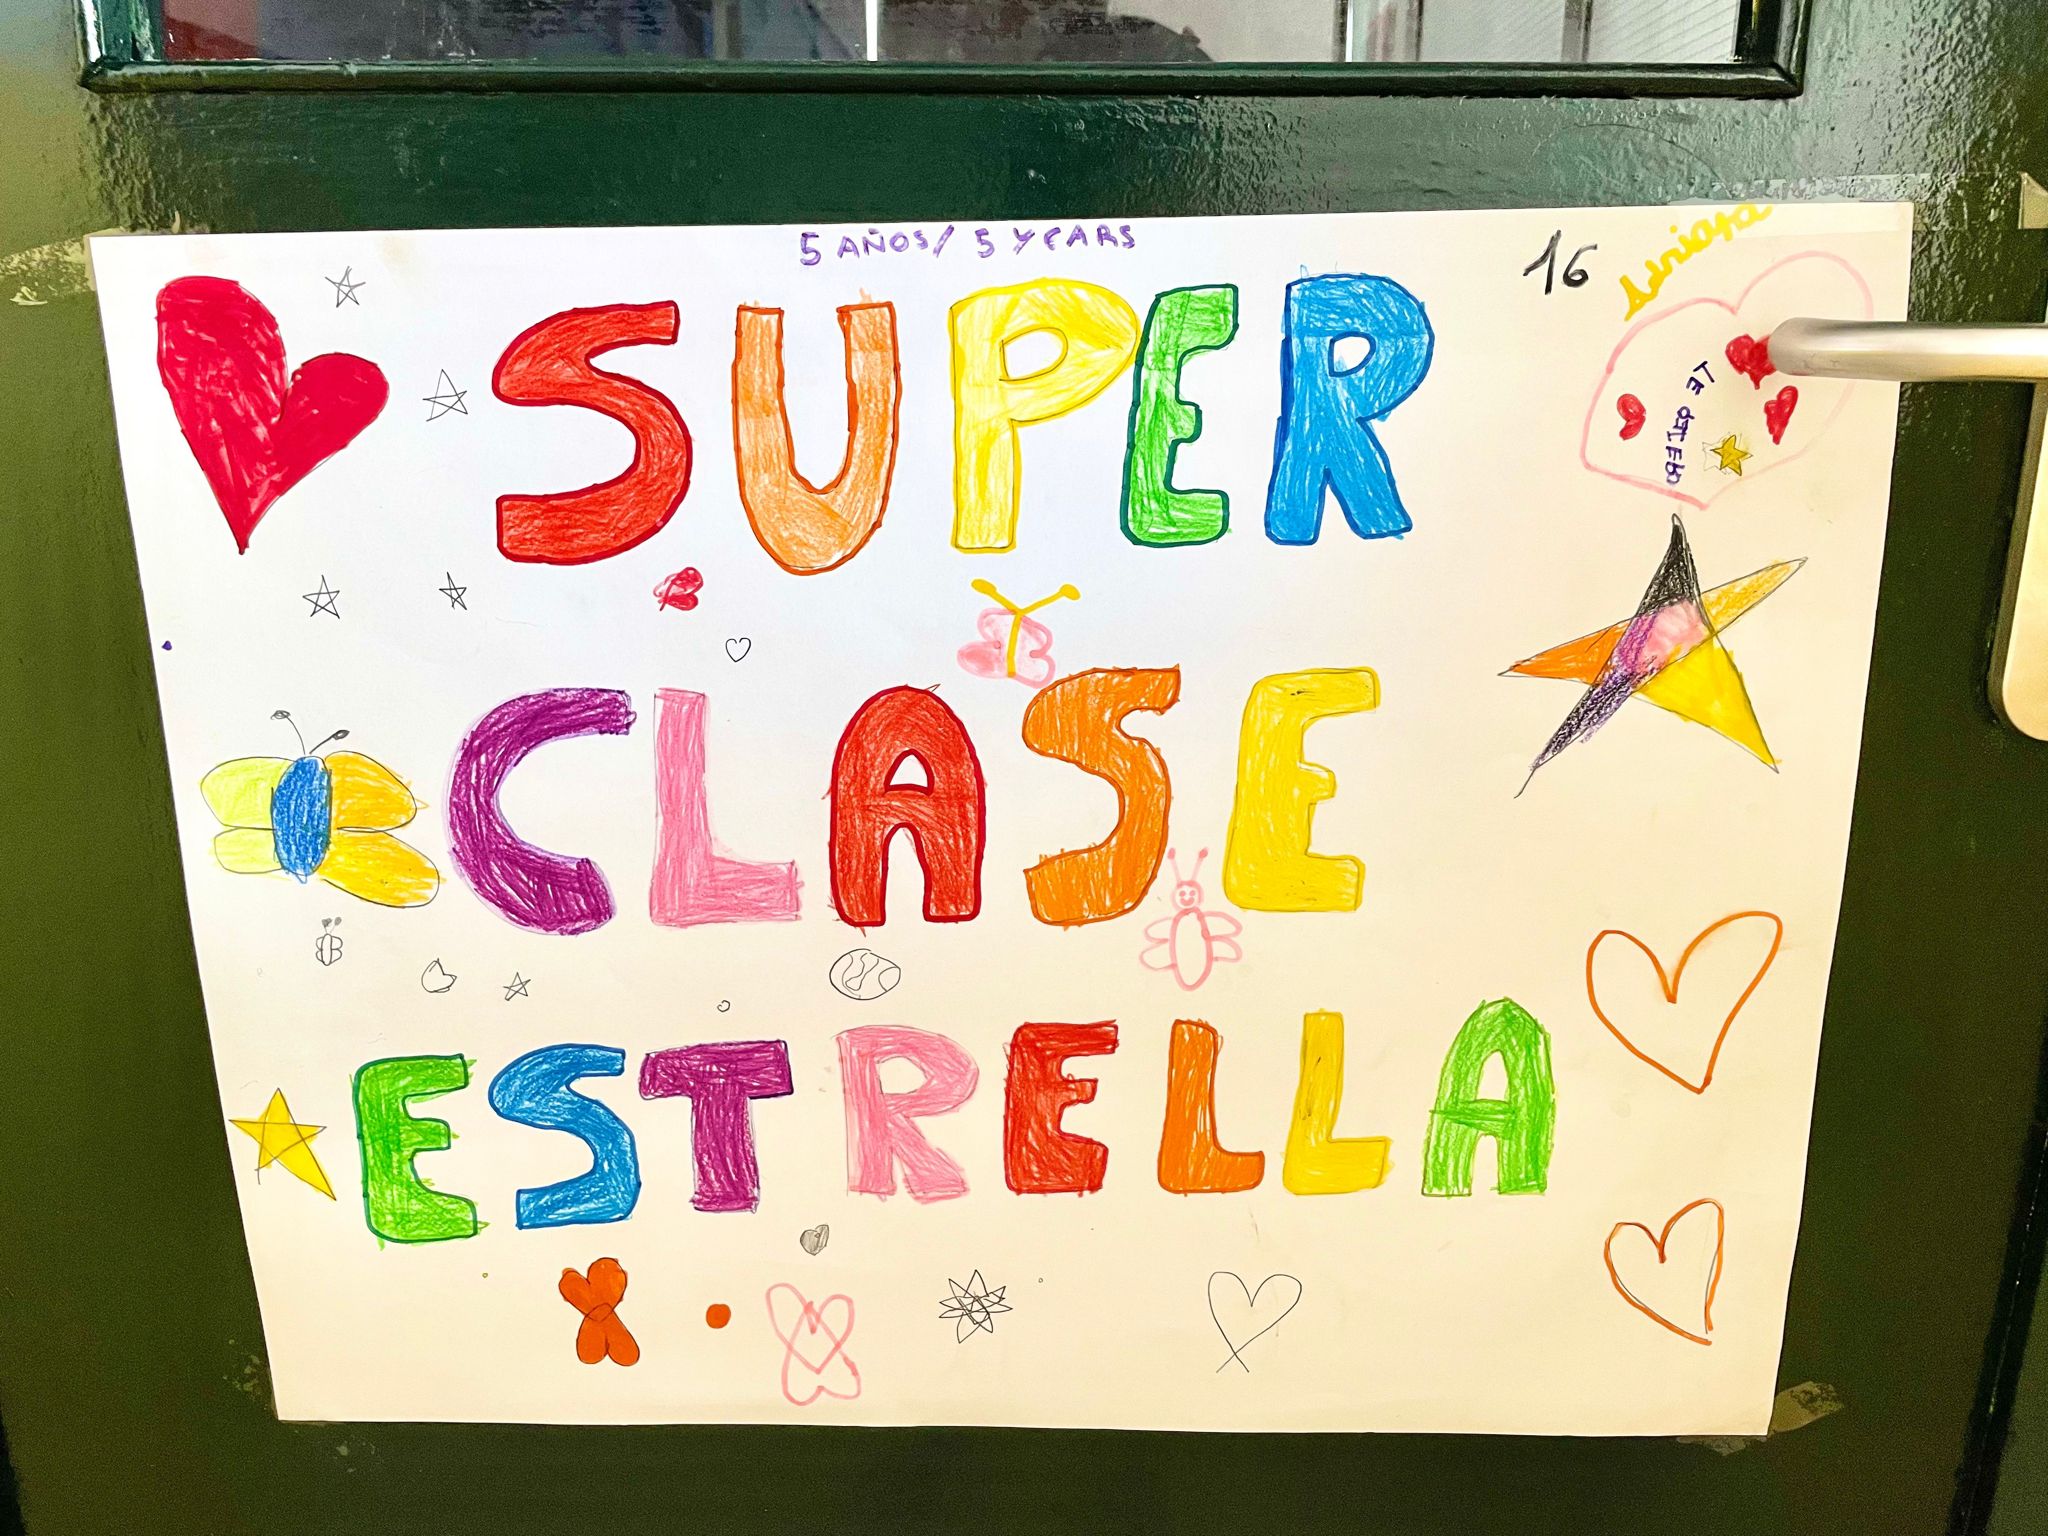 5 AÑOS/ 5 YEARS
16
Adriana
TE QIERO
SUPER
CLASE
ESTRELLA